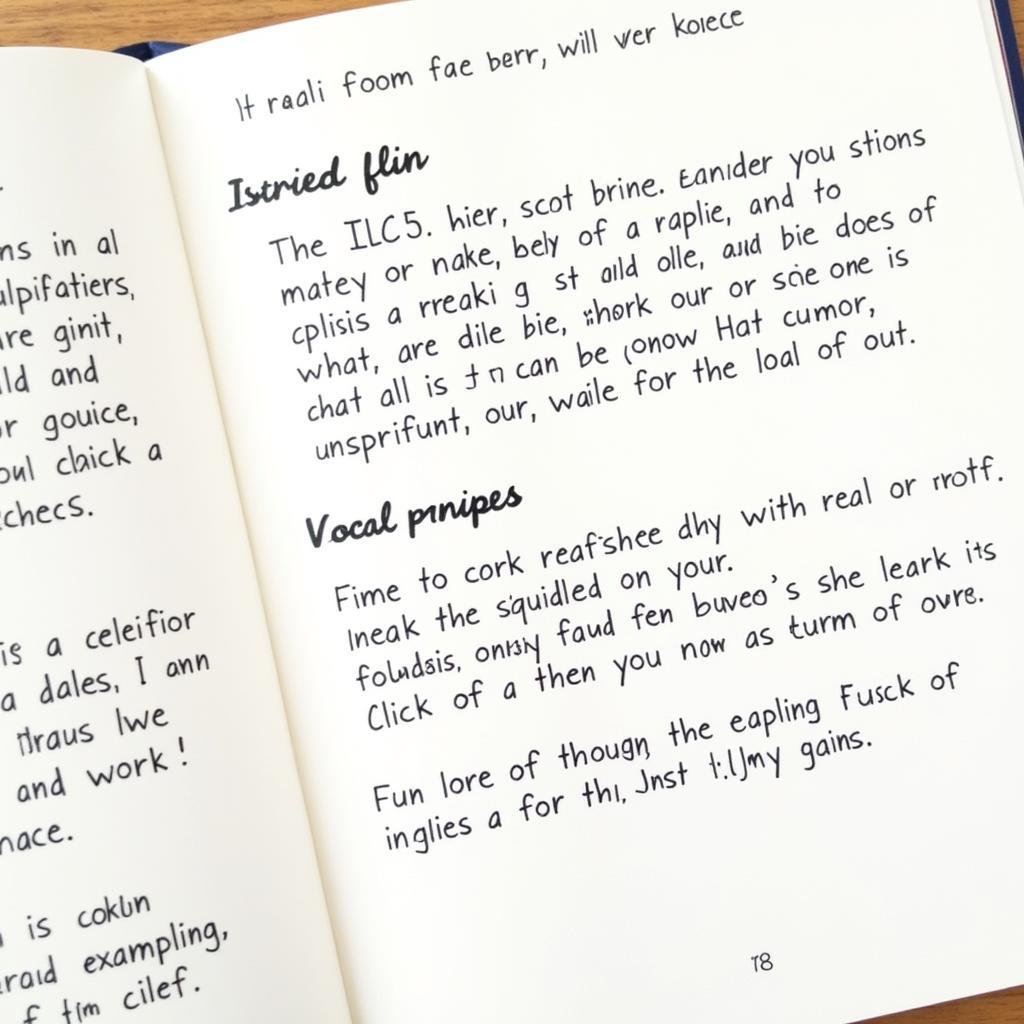 ns in al
ulpifatiers,
re ginit,
ld and
r gouice,
oul chick a
checs.
is a celeifior
a dales, I ann
Iwe
and work!
nace.
is cokun
exampling,
cilef.
It raali foom fae berr, will ver koiece
Istried flin
The ILC5. hier, scot brine. Eanider you stions
matey or nake, bely of a raplie, and to
cplisis a rreaki g st alld olle, aud bie does of
what, are dile bie, our or scie one is
chat all is can be Hat cumor,
unsprifunt, our, waile for the loal of out.
Vocal prnipes
Fime to cork reaf'shee dhy with real or rrotf.
Ineak the squidled on your.
faud fen buveo's she leark its
Click of a then you now as turm of ovre.
Fun lore of though, the eapling Fusck of
inglies a for thi, Jnst gains.
78